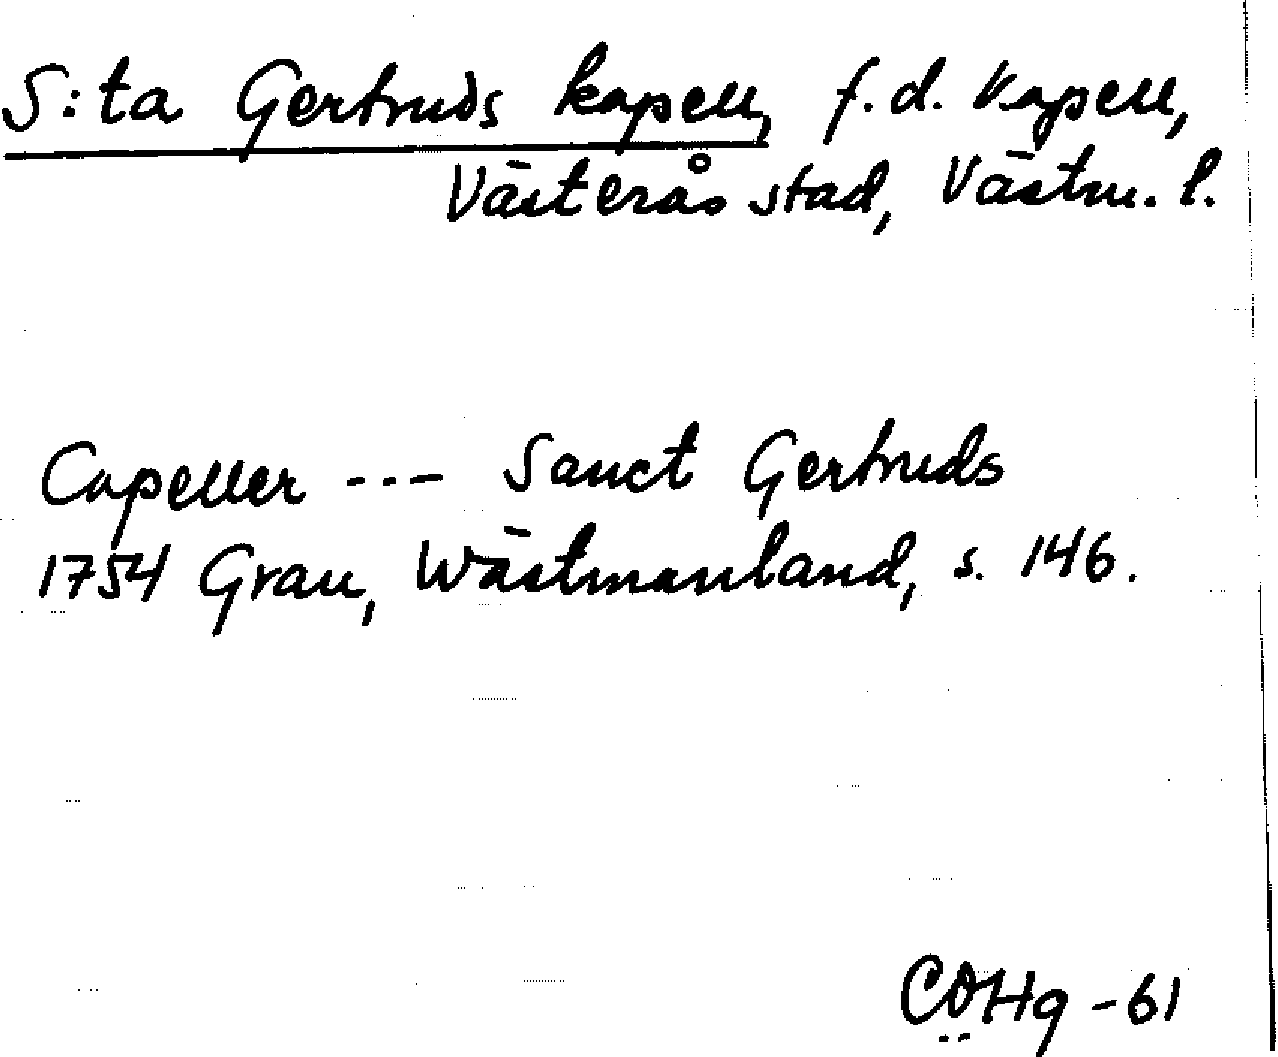 S:ta Gertruds kapell, f.d. kapell,
Västerås stad, Västm. l.
Capeller --- Sanct Gertruds
1754 Grau, Wästmanland, s. 146.
CÖHg -61